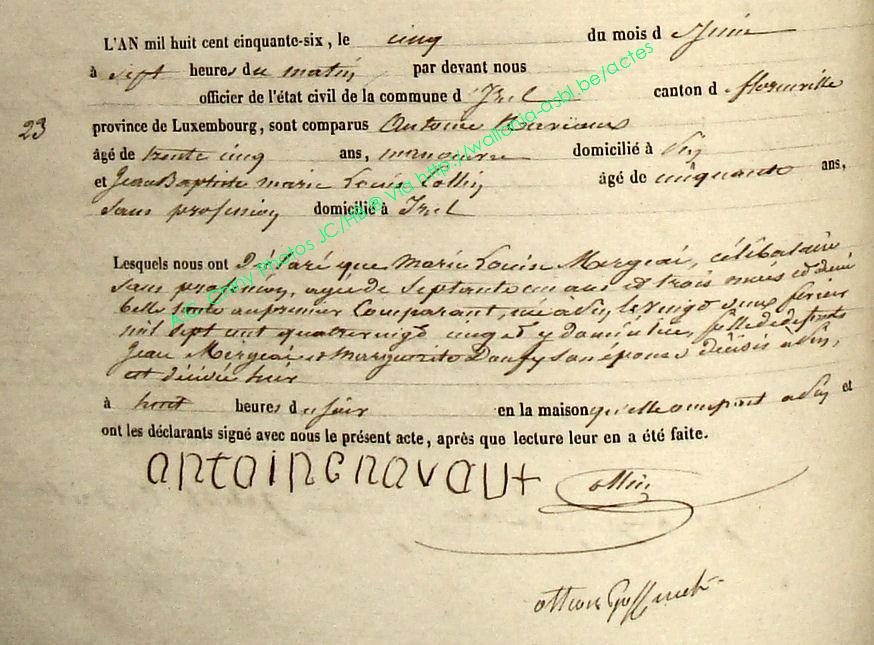 L'AN mil huit cent cinquante-six, le cinq du mois d Juin
à sept heures du matin par devant nous
officier de l'état civil de la commune d Izel canton d florenville
23 province de Luxembourg, sont comparus Antoine
âgé de trente cinq ans, manoeuvre domicilié à Pin
et Jean Baptiste marie Louis Collin âgé de cinquante ans,
sans profession domicilié à Izel
Lesquels nous ont Déclaré que Marie Louise Mergeai, célibataire
sans profession, agée de septante un ans et trois mois et demi
belle au premier Comparant, née à Pin, le vingt février
mil sept cent quatre vingt cinq et y domiciliée, fille de défunts
Jean Mergeai et Marguerite son épouse décédés à Pin,
est décédée hier
à huit heures du soir en la maison qu'elle occupoit à Pin et
ont les déclarants signé avec nous le présent acte, après que lecture leur en a été faite.
antoine navaux Collin
AC Chiny Photos JC/HB ® via http://wallonia-asbl.be/actes